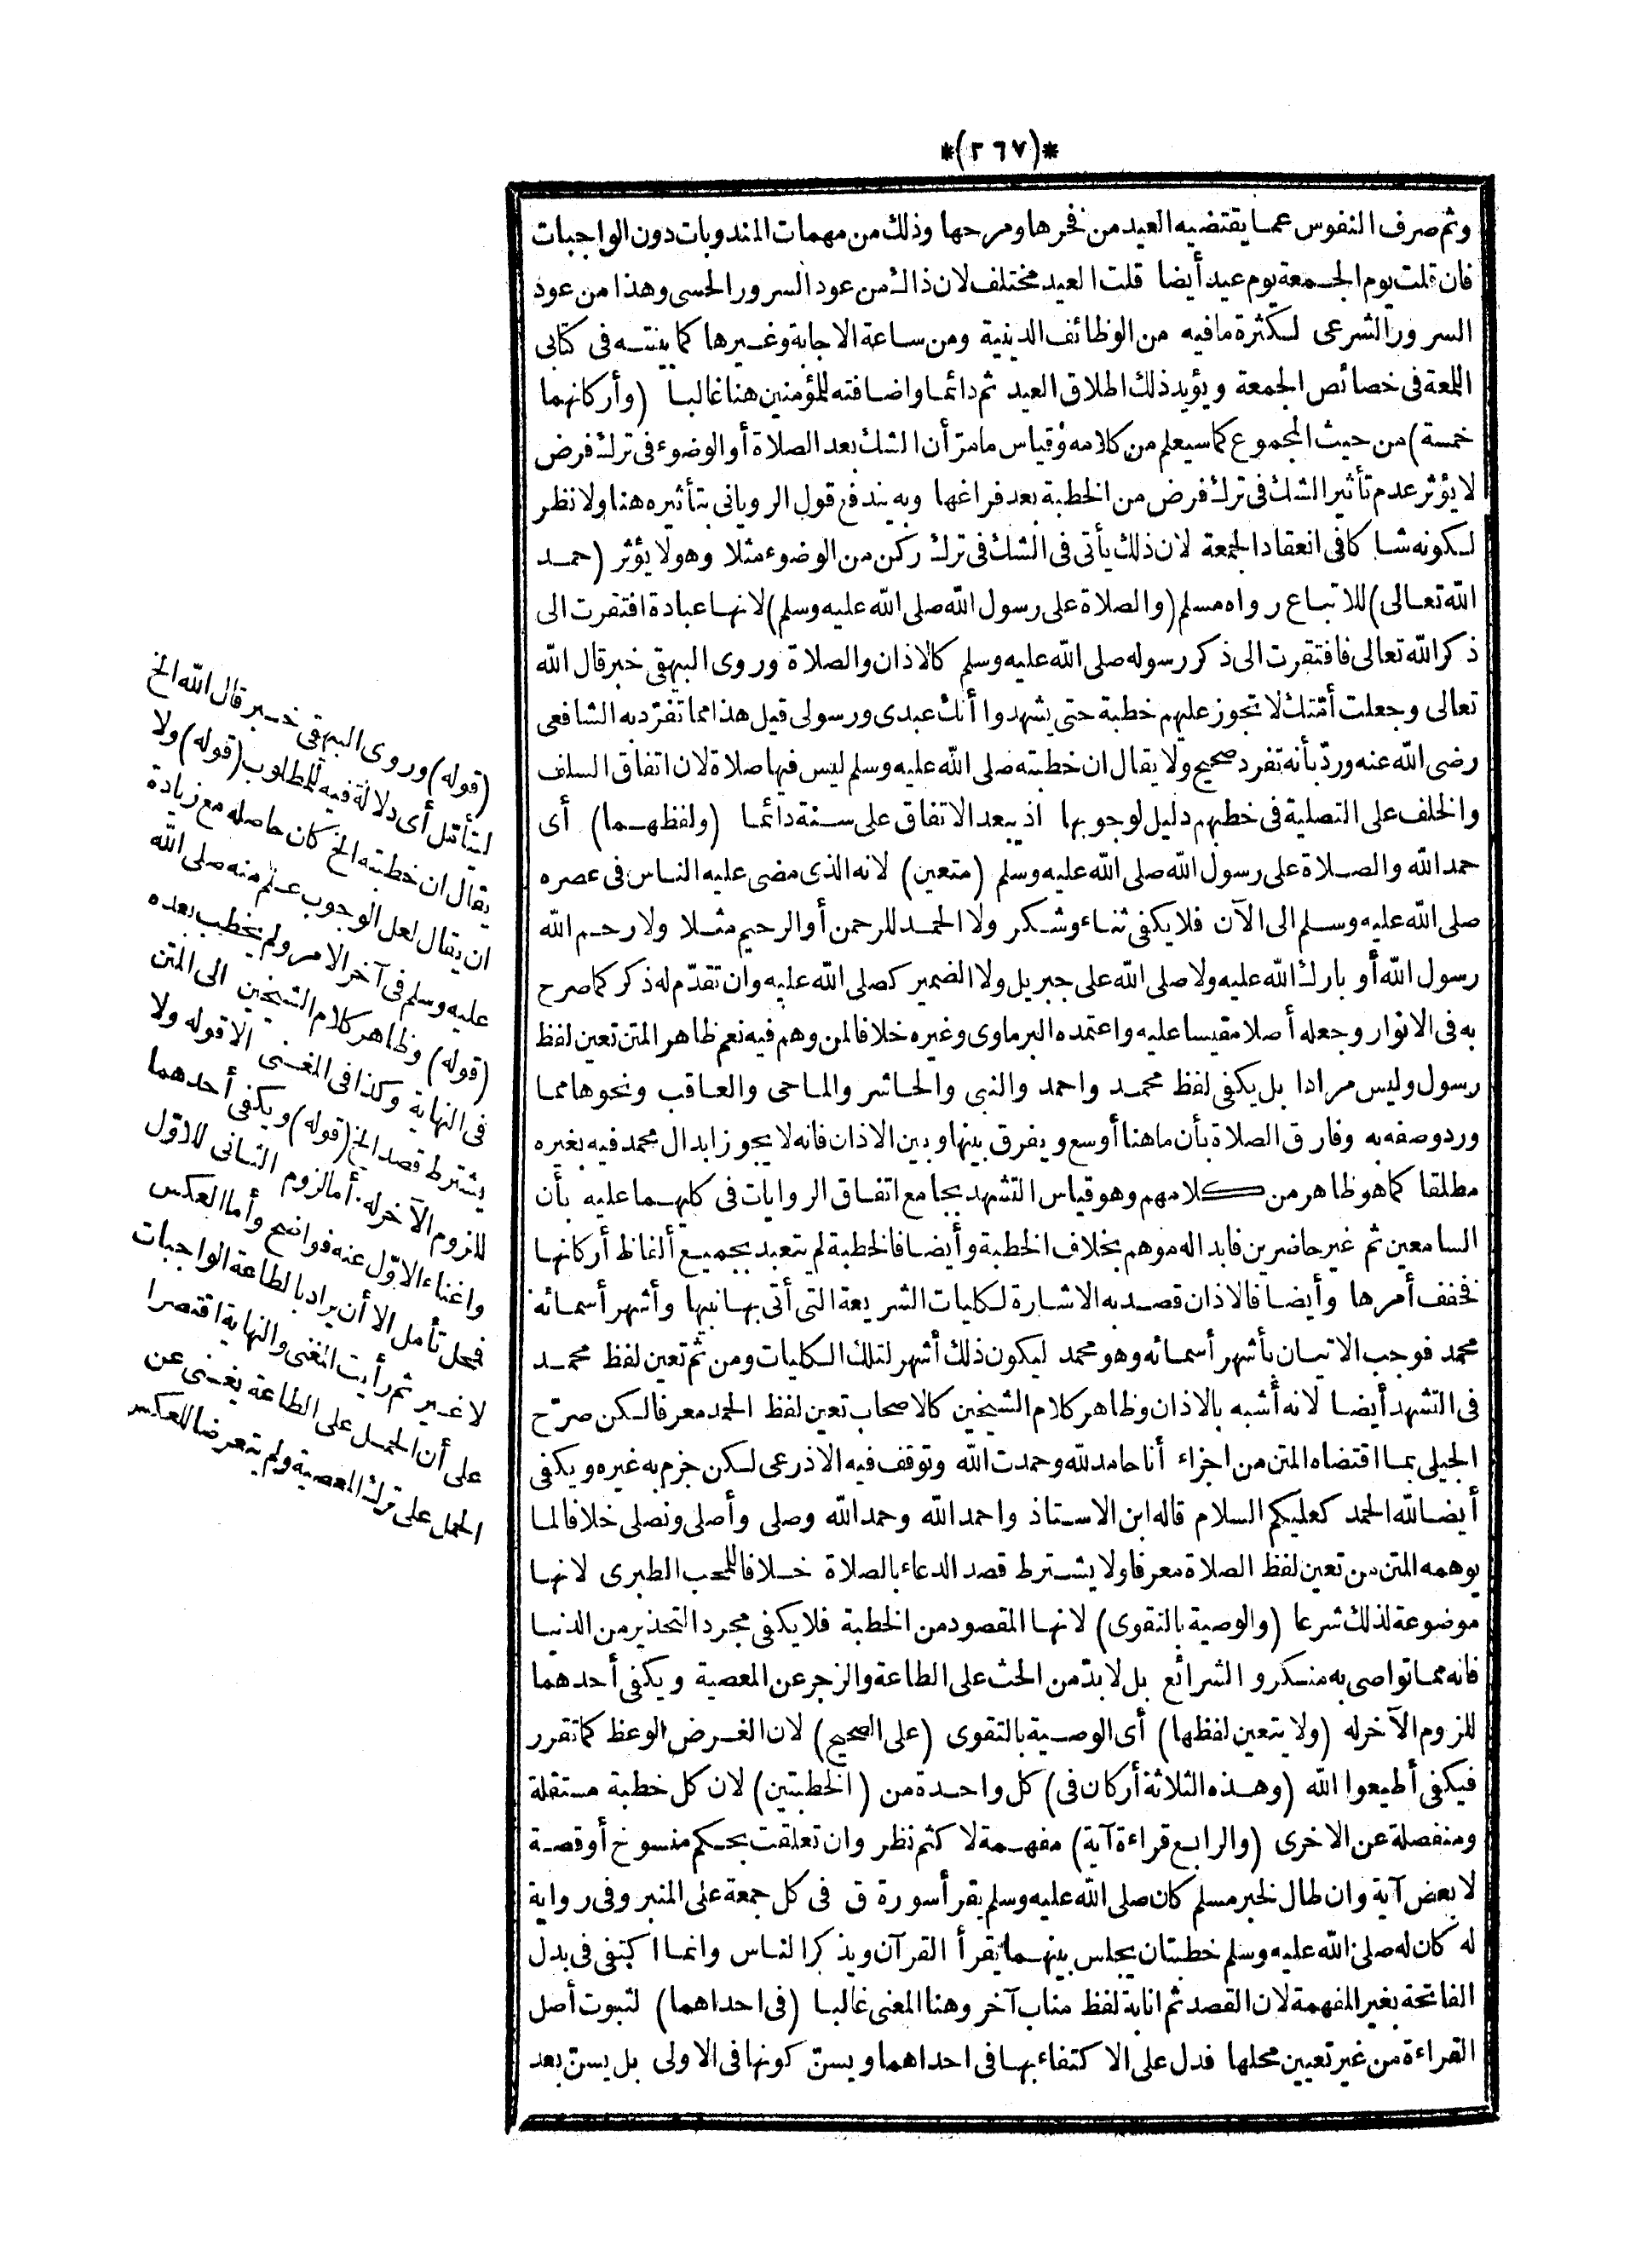 *(٢٦٧)*
وثم صرف النفوس عما يقتضيه العيد من فخرها ومرحها وذلك من مهمات المندوبات دون الواجبات
فان قلت يوم الجمعة يوم عيد أيضا قلت العيد مختلف لان ذاك من عود السرور الحسى وهذا من عود
السرور الشرعى لكثرة ما فيه من الوظائف الدينية ومن ساعة الاجابة وغيرها كما بينته فى كتابى
اللمعة فى خصائص الجمعة ويؤيد ذلك اطلاق العيد ثم دائما واضافته للمؤمنين هنا غالبا (وأركانهما
خمسة) من حيث المجموع كما سيعلم من كلامه وقياس ما مرّ أن الشك بعد الصلاة أو الوضوء فى ترك فرض
لا يؤثر عدم تأثير الشك فى ترك فرض من الخطبة بعد فراغها وبه يندفع قول الرويانى بتأثيره هنا ولا نظر
لكونه شاكا فى انعقاد الجمعة لان ذلك يأتى فى الشك فى ترك ركن من الوضوء مثلا وهو لا يؤثر (حمد
الله تعالى) للاتباع رواه مسلم (والصلاة على رسول الله صلى الله عليه وسلم) لانها عبادة افتقرت الى
ذكر الله تعالى فافتقرت الى ذكر رسوله صلى الله عليه وسلم كالاذان والصلاة وروى البيهقى خبر قال الله
تعالى وجعلت أمّتك لا تجوز عليهم خطبة حتى يشهدوا أنك عبدى ورسولى قيل هذا مما تفرّد به الشافعى
رضى الله عنه وردّ بأنه تفرد صحيح ولا يقال ان خطبته صلى الله عليه وسلم ليس فيها صلاة لان اتفاق السلف
والخلف على التصلية فى خطبهم دليل لوجوبها اذ يبعد الاتفاق على سنة دائما (ولفظهما) أى
حمد الله والصلاة على رسول الله صلى الله عليه وسلم (متعين) لانه الذى مضى عليه الناس فى عصره
صلى الله عليه وسلم الى الآن فلا يكفى ثناء وشكر ولا الحمد للرحمن أو الرحيم مثلا ولا رحم الله
رسول الله أو بارك الله عليه ولا صلى الله على جبريل ولا الضمير كصلى الله عليه وان تقدّم له ذكر كما صرح
به فى الانوار وجعله أصلا مقيسا عليه واعتمده البرماوى وغيره خلافا لمن وهم فيه نعم ظاهر المتن تعين لفظ
رسول وليس مرادا بل يكفى لفظ محمد واحمد والنبى والحاشر والماحى والعاقب ونحوها مما
ورد وصفه به وفارق الصلاة بأن ما هنا أوسع ويفرق بينها وبين الاذان فانه لا يجوز ابدال محمد فيه بغيره
مطلقا كما هو ظاهر من كلامهم وهو قياس التشهد بجامع اتفاق الروايات فى كليهما عليه بأن
السامعين ثم غير حاضرين فابداله موهم بخلاف الخطبة وأيضا فالخطبة لم يتعبد بجميع ألفاظ أركانها
فخفف أمرها وأيضا فالاذان قصد به الاشارة لكليات الشريعة التى أتى بها نبيها وأشهر أسمائه
محمد فوجب الاتيان بأشهر أسمائه وهو محمد ليكون ذلك أشهر لتلك الكليات ومن ثم تعين لفظ محمد
فى التشهد أيضا لانه أشبه بالاذان وظاهر كلام الشيخين كالاصحاب تعين لفظ الحمد معرفا لكن صرّح
الجيلى بما اقتضاه المتن من اجزاء أنا حامد لله وحمدت الله وتوقف فيه الاذرعى لكن جزم به غيره ويكفى
أيضا لله الحمد كعليكم السلام قاله ابن الاستاذ واحمد الله وحمد الله وصلى وأصلى ونصلى خلافا لما
يوهمه المتن من تعين لفظ الصلاة معرفا ولا يشترط قصد الدعاء بالصلاة خلافا للمحب الطبرى لانها
موضوعة لذلك شرعا (والوصية بالتقوى) لانها المقصود من الخطبة فلا يكفى مجرد التحذير من الدنيا
فانه مما تواصى به منكرو الشرائع بل لا بدّ من الحث على الطاعة والزجر عن المعصية ويكفى أحدهما
للزوم الآخر له (ولا يتعين لفظها) أى الوصية بالتقوى (على الصحيح) لان الغرض الوعظ كما تقرر
فيكفى أطيعوا الله (وهذه الثلاثة أركان فى) كل واحدة من (الخطبتين) لان كل خطبة مستقلة
ومنفصلة عن الاخرى (والرابع قراءة آية) مفهمة لا كثم نظر وان تعلقت بحكم منسوخ أو قصة
لا بعض آية وان طال لخبر مسلم كان صلى الله عليه وسلم يقرأ سورة ق فى كل جمعة على المنبر وفى رواية
له كان له صلى الله عليه وسلم خطبتان يجلس بينهما يقرأ القرآن ويذكر الناس وانما اكتفى فى بدل
الفاتحة بغير المفهمة لان القصد ثم انابة لفظ مناب آخر وهنا المعنى غالبا (فى احداهما) لثبوت أصل
القراءة من غير تعيين محلها فدل على الاكتفاء بها فى احداهما ويسنّ كونها فى الاولى بل يسنّ بعد
(قوله) وروى البيهقى خبر قال الله الخ
ليتأمّل أى دلالة فيه للمطلوب (قوله) ولا
يقال ان خطبته الخ كان حاصله مع زيادة
ان يقال لعل الوجوب علم منه صلى الله
عليه وسلم فى آخر الامر ولم يخطب بعده
(قوله) وظاهر كلام الشيخين الى المتن
فى النهاية وكذا فى المغنى الا قوله ولا
يشترط قصد الخ (قوله) ويكفى أحدهما
للزوم الآخر له. أما لزوم الثانى للاوّل
واغناء الاوّل عنه فواضح وأما العكس
فمحل تأمل الا أن يراد بالطاعة الواجبات
لا غير ثم رأيت المغنى والنهاية اقتصرا
على أن الحمل على الطاعة يغنى عن
الحمل على ترك المعصية ولم يتعرضا للعكس